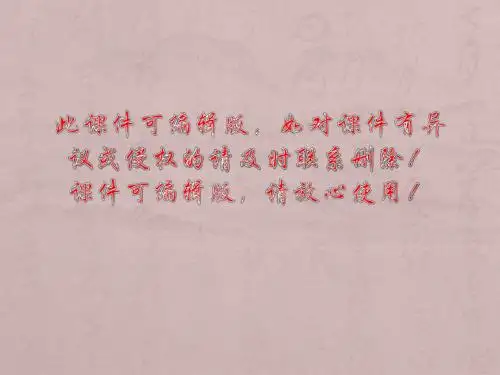 此课件可编辑版，如对课件有异
议或侵权的请及时联系删除！
课件可编辑版，请放心使用！